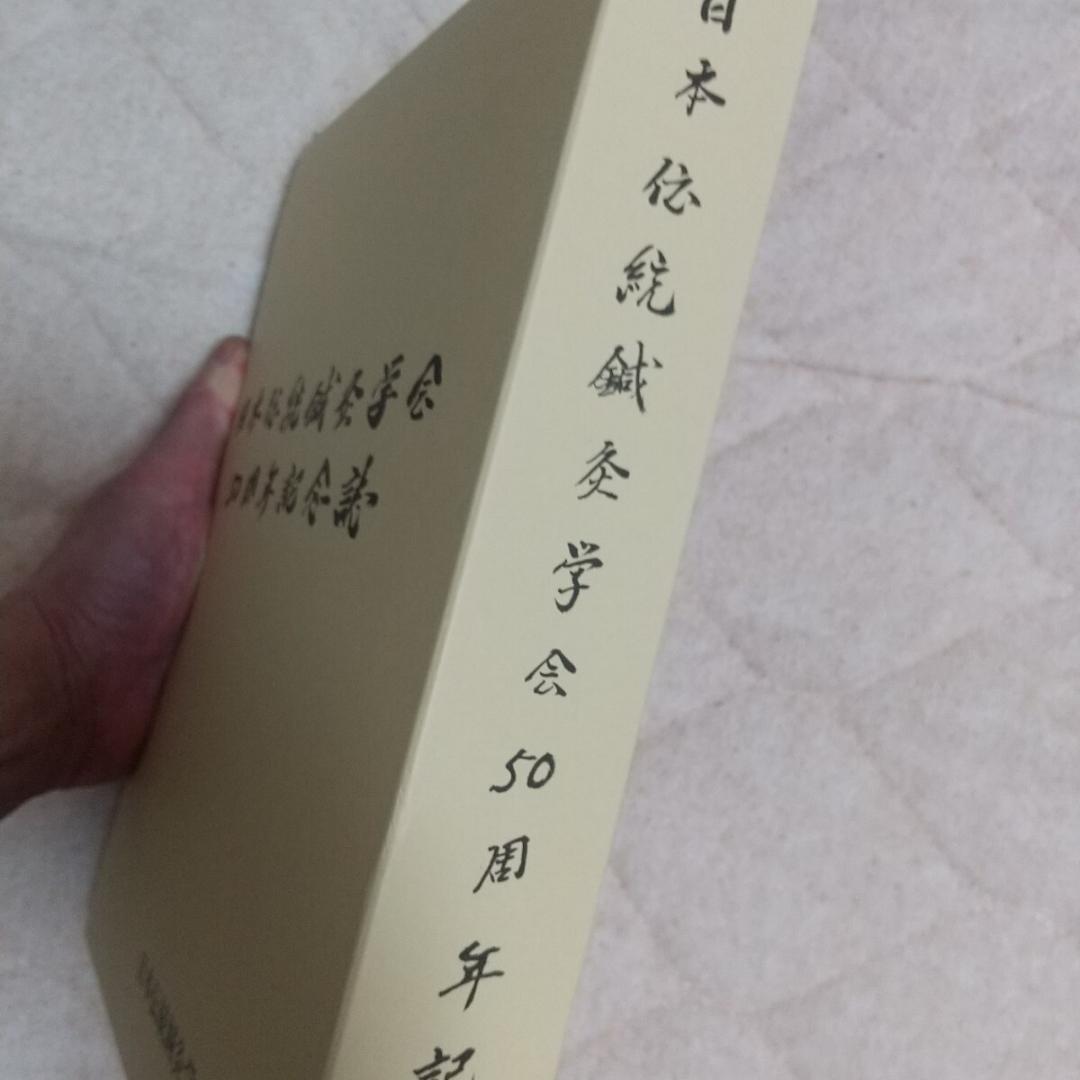 日本伝統鍼灸学会50周年記
日本伝統鍼灸学会
50周年記念誌